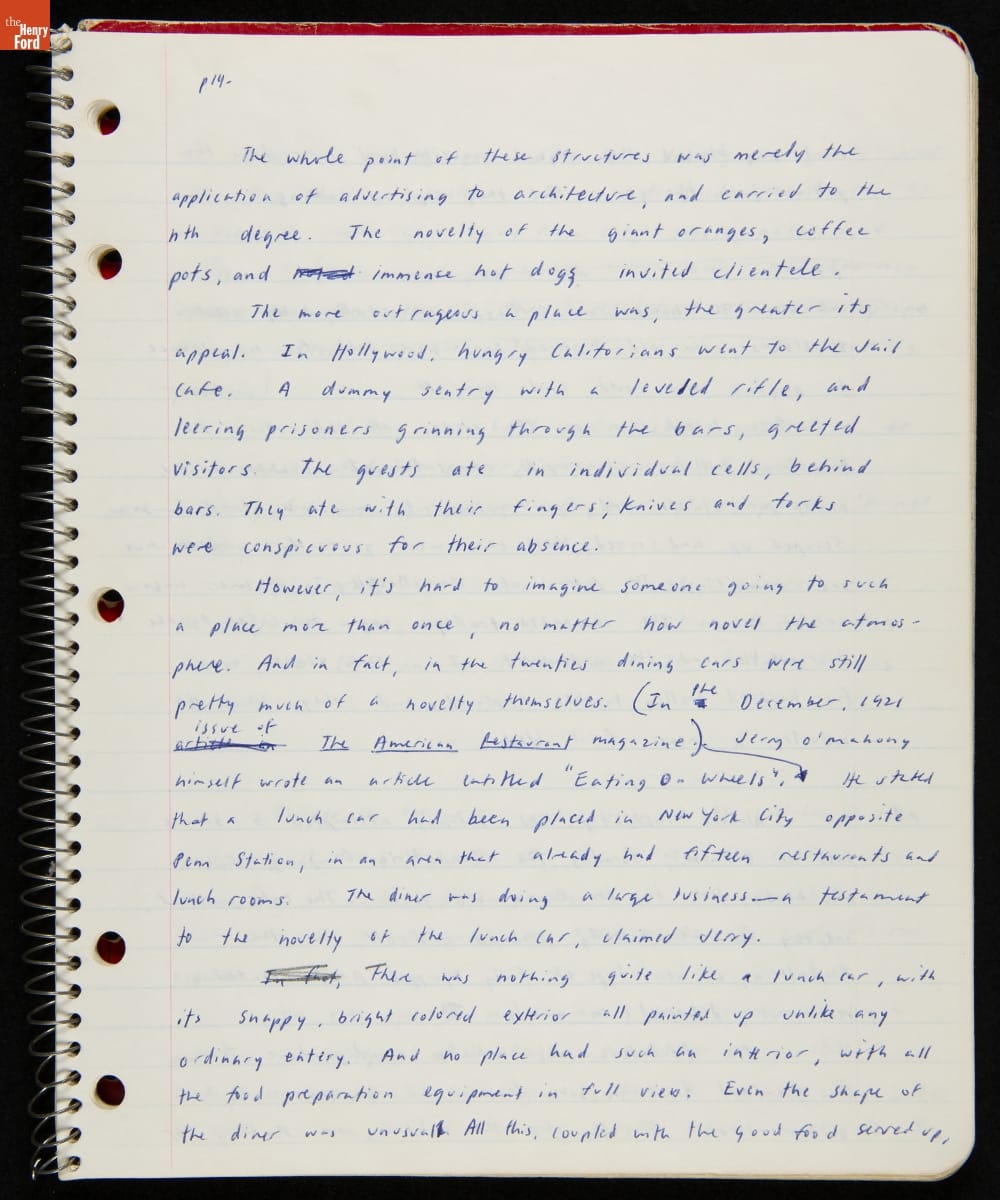 the
Henry
Ford
p14-
The whole point of these structures was merely the
application of advertising to architecture, and carried to the
nth degree. The novelty of the giant oranges, coffee
pots, and immense hot dogs invited clientele.
The more outrageous a place was, the greater its
appeal. In Hollywood, hungry Califorians went to the Jail
Cafe. A dummy sentry with a leveled rifle, and
leering prisoners grinning through the bars, greeted
visitors. The guests ate in individual cells, behind
bars. They ate with their fingers; knives and forks
were conspicuous for their absence.
However, it's hard to imagine someone going to such
a place more than once, no matter how novel the atmos-
phere. And in fact, in the twenties dining cars were still
pretty much of a novelty themselves. (In the December, 1921
issue of
article in The American Restaurant magazine.) Jerry O'Mahony
himself wrote an article entitled "Eating On Wheels". He stated
that a lunch car had been placed in New York City opposite
Penn Station, in an area that already had fifteen restaurants and
lunch rooms. The diner was doing a large business—a testament
to the novelty of the lunch car, claimed Jerry.
In fact, There was nothing quite like a lunch car, with
its snappy, bright colored exterior all painted up unlike any
ordinary eatery. And no place had such an interior, with all
the food preparation equipment in full view. Even the shape of
the diner was unusual. All this, coupled with the good food served up,